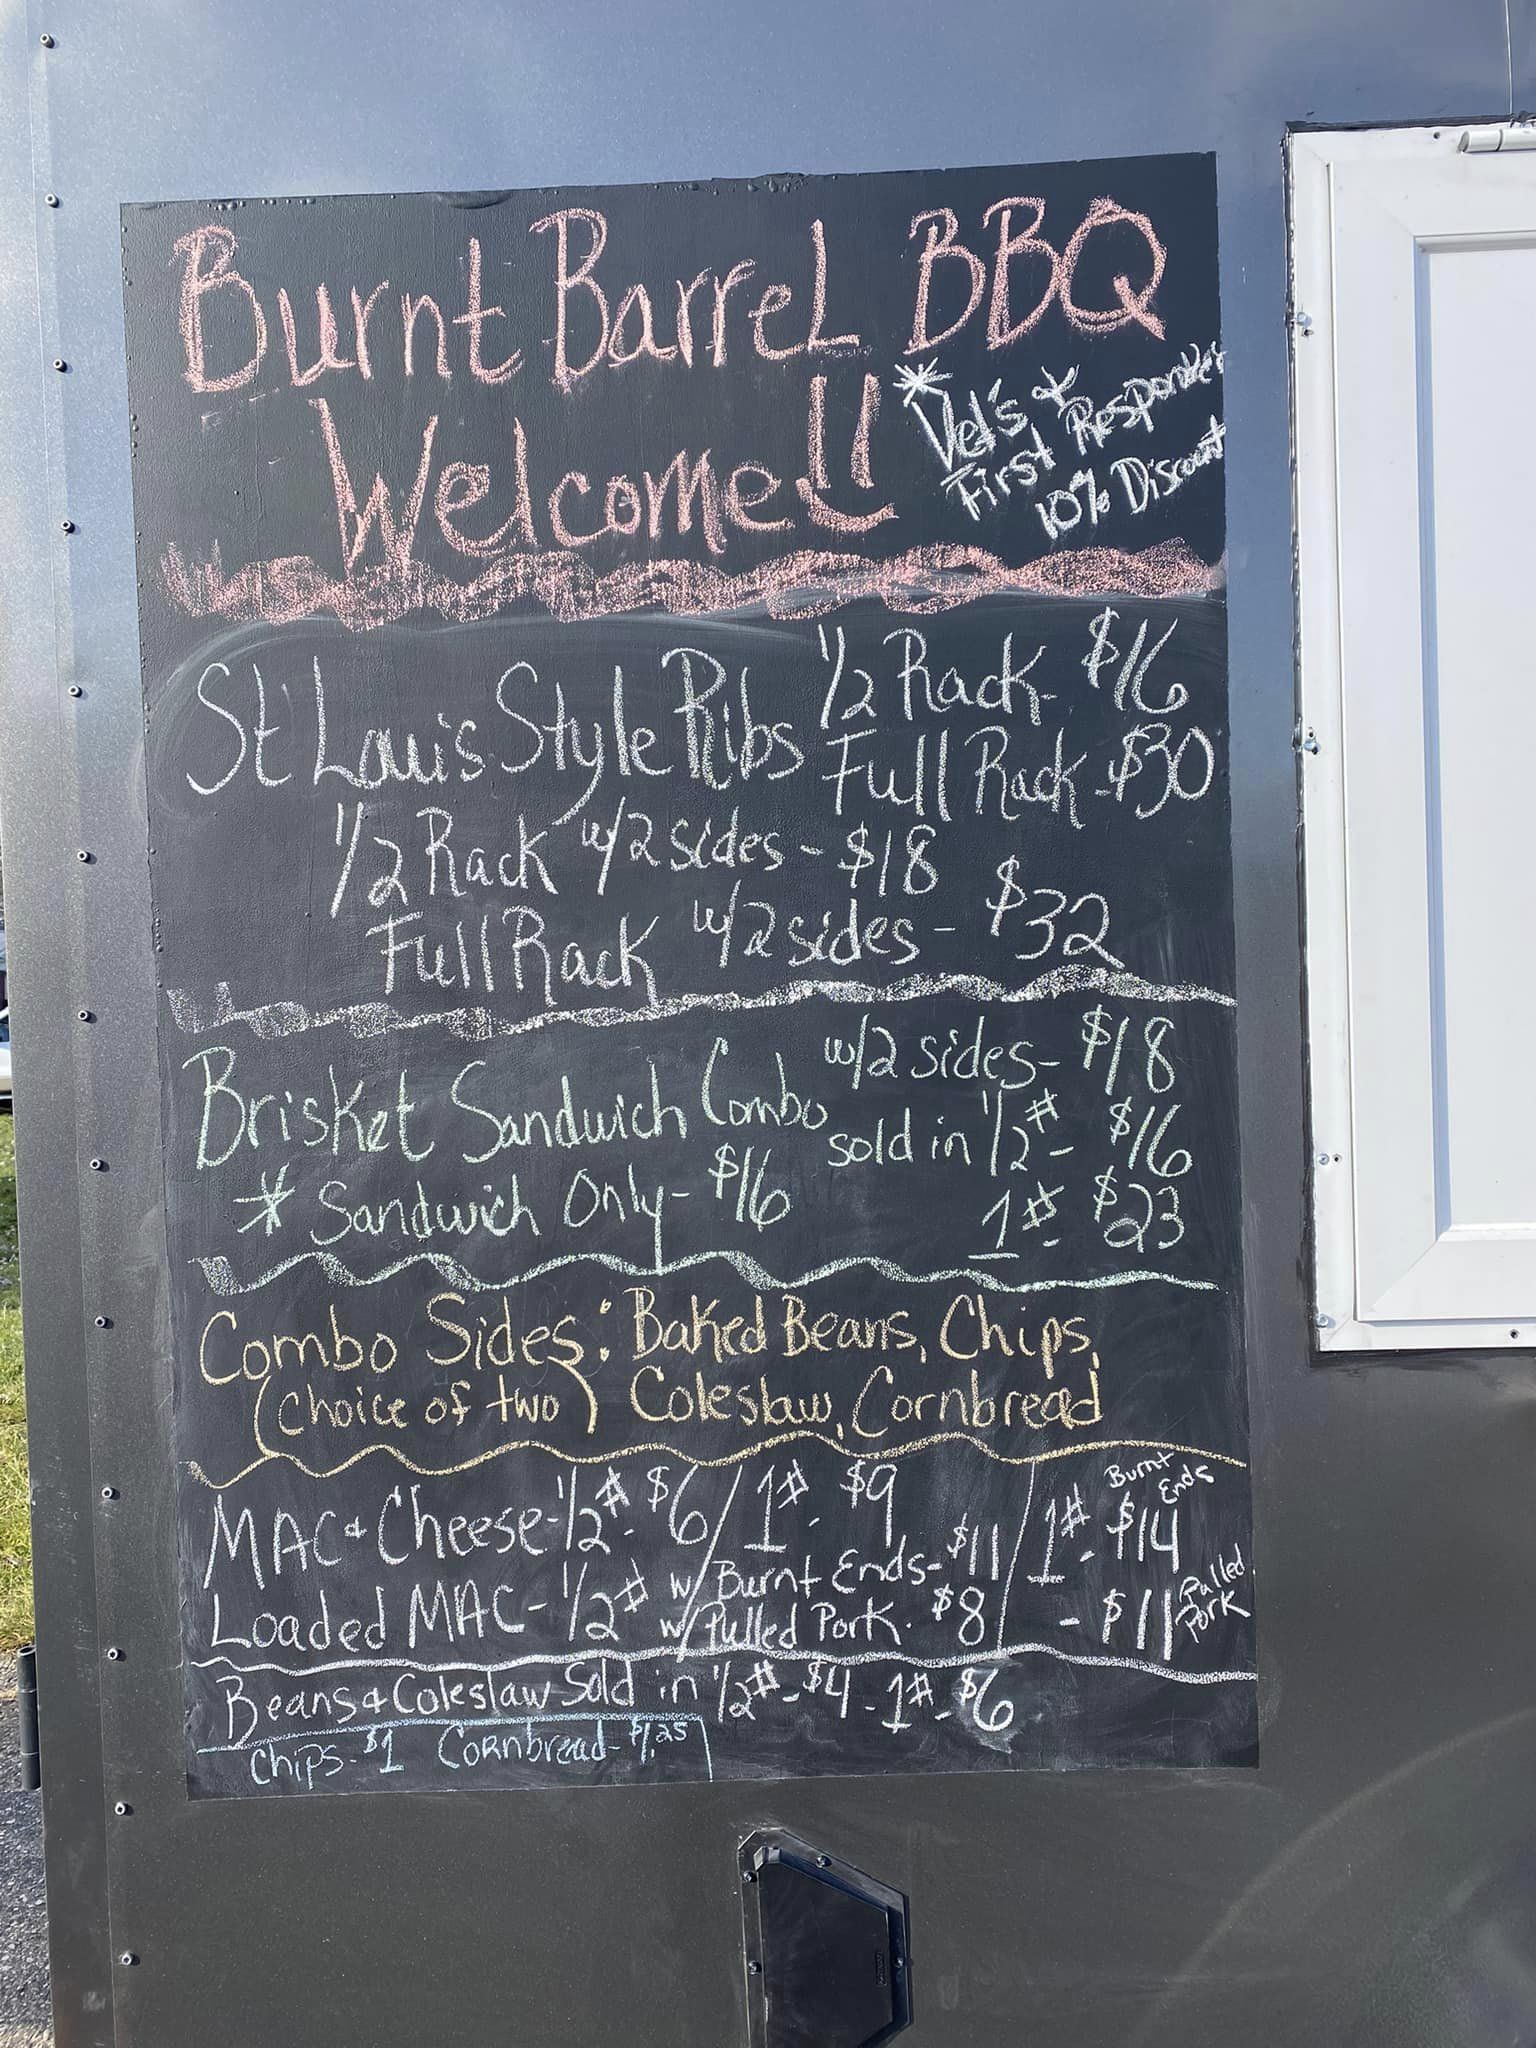 Burnt Barrel BBQ
Welcome!!
* Vet's & First Responder 10% Discount
St Louis Style Ribs 1/2 Rack - $16
Full Rack - $30
1/2 Rack w/2 sides - $18
Full Rack w/2 sides - $32
Brisket Sandwich Combo w/2 sides - $18
* Sandwich Only - $16
sold in 1/2# - $16
1# - $23
Combo Sides: Baked Beans, Chips,
(choice of two) Coleslaw, Cornbread
MAC & Cheese - 1/2# - $6 / 1# - $9
Loaded MAC - 1/2# w/ Burnt Ends - $11 / 1# - $14 Burnt Ends
w/ Pulled Pork - $8 / - $11 Pulled Pork
Beans & Coleslaw Sold in 1/2# - $4 - 1# - $6
Chips - $1 Cornbread - $1.25